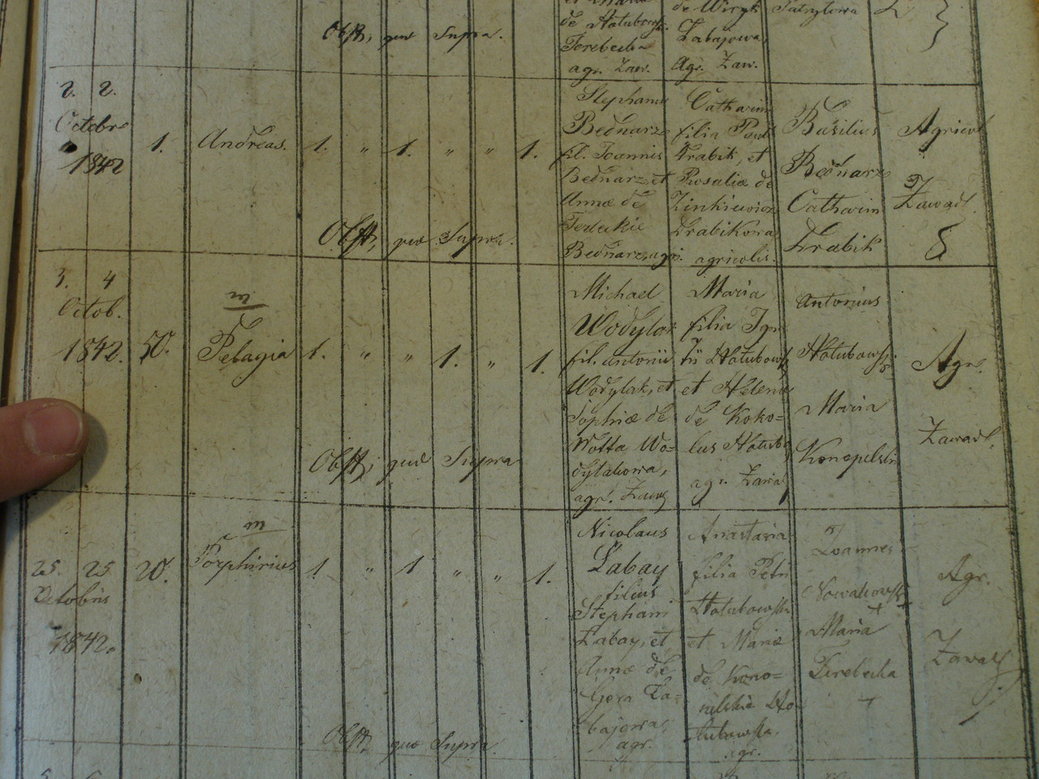 de Wiryk
de Hołubowsk.
Terebecka Łabajowa,
agr. Zaw. Agr. Zaw.
Obst, quae Supra.
2. 2.
Octobr
1842
1. Andreas. 1. " 1. " " 1.
Stephanus
Bednarz
fil. Joannis
Bednarz et
Annae de
Bednarz, agri.
Catharin
filia Pauli
Drabik, et
Rosaliae de
Zinkiewicz
Drabikowa
agricolis.
Basilius
Bednarz
Catharin
Drabik
Agricol
Zawad.
Obst, quae Supra.
3. 4
Octob.
1842. 50. Pelagia 1. " " 1. " 1.
m
Michael
Wodylak
fil. Antonii
Wodylak, et
Sophiae de
Wotta Wo-
dylakowa,
agr. Zawa
Maria
filia Igna
tii Hołubowsk
et Helena
de Koko-
lus Hołub
agr. Zawa
Antonius
Hołubowsk.
Maria
Konopelski
Agr.
Zawad.
Obst, quae Supra
25. 25
Octobris
1842.
20.
m
Porphirius 1. " 1 " " 1.
Nicolaus
Łabay
filius
Stephani
Łabay, et
Annae de
Gera Ła-
bajowa,
agr.
Anastasia
filia Petri
Hołubowski
et Mariae
de Kono-
pilskie Ho
łubowska.
gr.
Joannes
Nowakowsk
+
Maria
Terebecka
+
Agr.
Zawad
Obst, quae Supra.